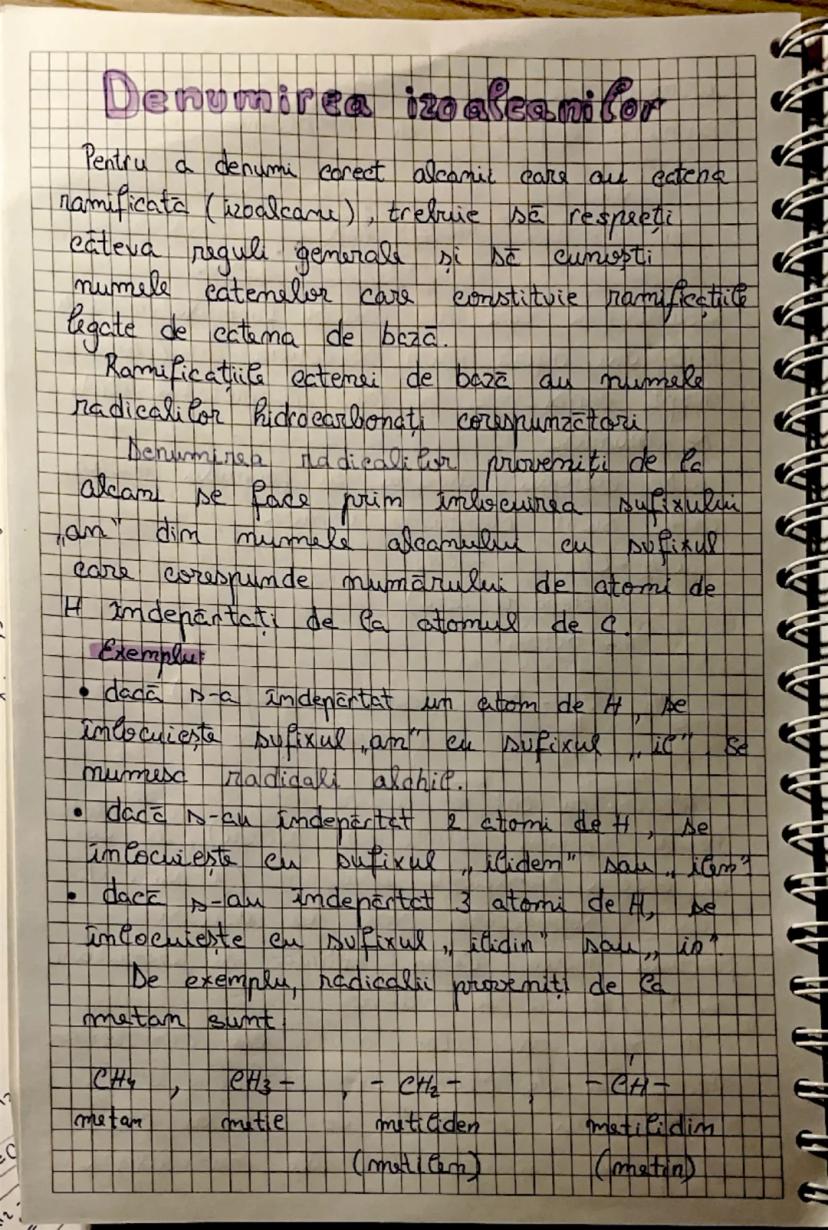 Denumirea izoalcanilor
Pentru a denumi corect alcanii care au catena
ramificată (izoalcani), trebuie să respecți
câteva reguli generale și să cunoști
numele catenelor care constituie ramificațiile
legate de catena de bază.
Ramificațiile catenei de bază au numele
radicalilor hidrocarbonați corespunzători
Denumirea radicalilor proveniți de la
alcani se face prin înlocuirea sufixului
„an" din numele alcanului cu sufixul
care corespunde numărului de atomi de
H îndepărtați de la atomul de C.
Exemplu:
• dacă s-a îndepărtat un atom de H, se
înlocuiește sufixul „an" cu sufixul „il" se
numesc radicali alchil.
• dacă s-au îndepărtat 2 atomi de H, se
înlocuiește cu sufixul „iliden" sau „ilen"
• dacă s-au îndepărtat 3 atomi de H, se
înlocuiește cu sufixul „ilidin" sau „in"
De exemplu, radicalii proveniți de la
metan sunt:
CH₄ , CH₃ – , – CH₂ – , – CH –
metan metil metiliden metilidin
(metilen) (metin)